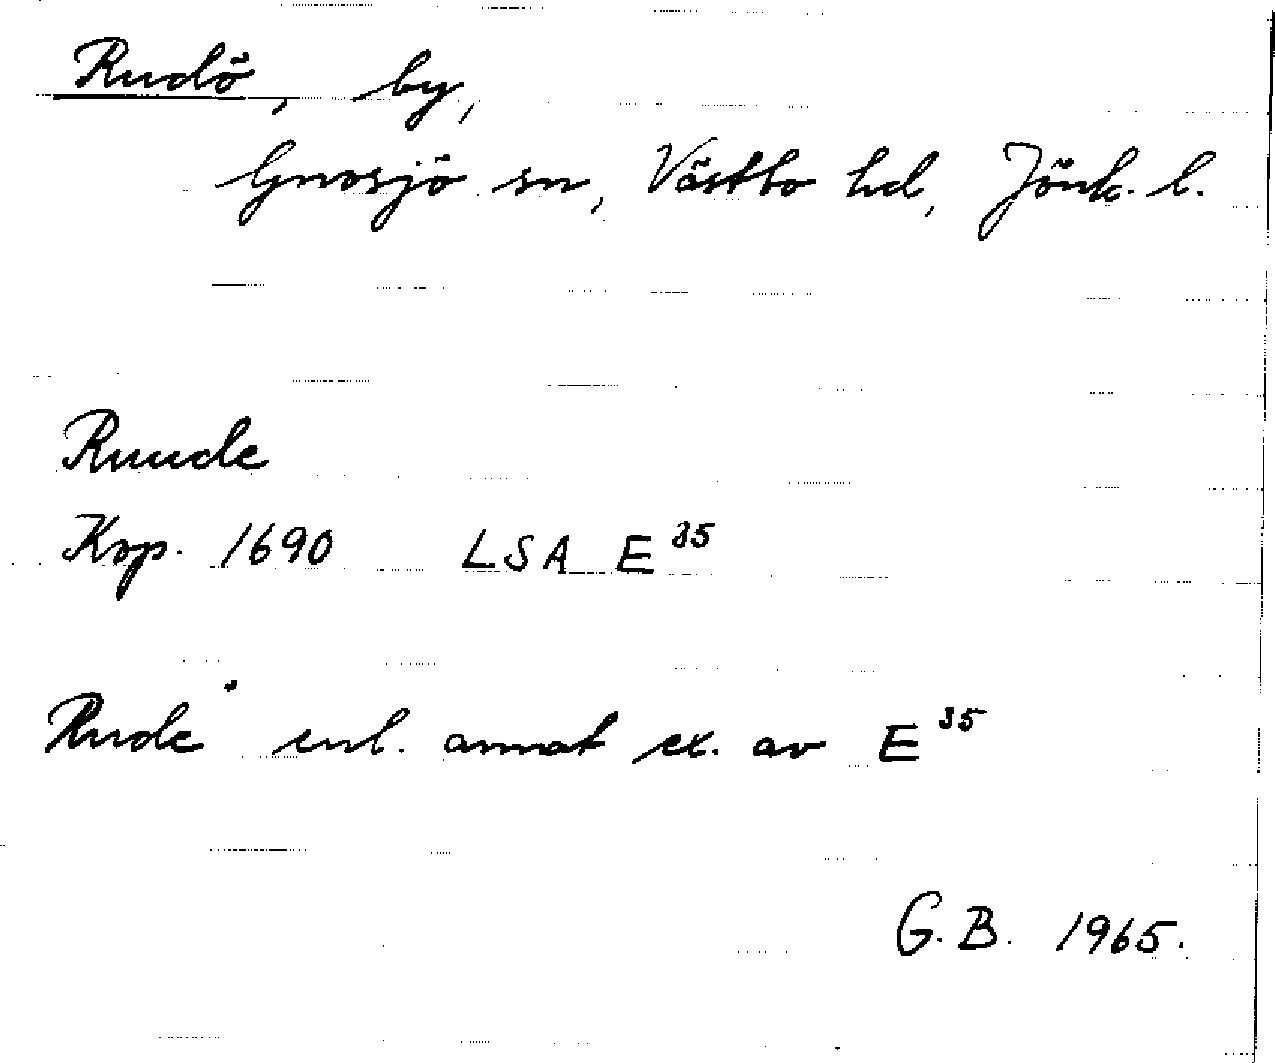 Rudö, by,
Gnosjö sn, Västbo hd, Jönk. l.
Ruude
Kop. 1690 LSA E 35
Rude enl. annat ex. av E 35
G.B. 1965.